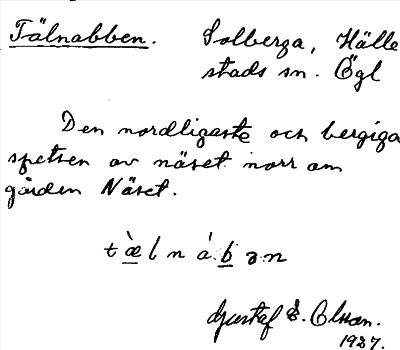 Tälnabben. Solberga, Hälle
stads sn. Ögl
Den nordligaste och bergiga
spetsen av näset norr om
gården Näset.
t æ̀ l n á b ə n
Gustaf E. Olsson.
1937.